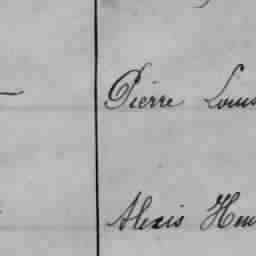 Pierre Louis
Alexis Hen